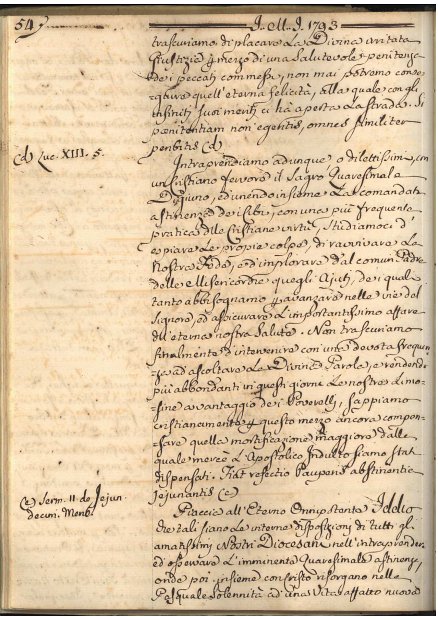 54
I. M. I. 1793
trascuriamo di placare La Divina irritata
Giustizia p mezzo di una Salutevole penitenza
dei peccati commessi, non mai potremo conse-
guire quell'eterna felicità, alla quale con gli
infiniti suoi meriti ci hà aperta La strada. Si
pœnitentiam non egeritis, omnes similiter
peribitis (d)
(d) Luc. XIII. 5.
Intraprendiamo adunque o dilettissimi, con
un Cristiano fervore il Sagro Quaresimale
Digiuno, ed unendo insieme La comandata
astinenza dei cibi, con una più frequente
pratica delle Cristiane virtù, studiamoci d'
espiare Le proprie colpe, di ravvivare La
Nostra Fede, e d'implorare dal comun Padre
delle Misericordie quegli Ajuti, dei quali
tanto abbisognamo p avanzare nelle vie del
Signore, ed assicurare L'importantissimo affare
dell'eterna nostra Salute. Non trascuriamo
finalmente d'intervenire con una devota frequen-
za ad ascoltare La Divina Parola, e rendendo
più abbondanti in questi giorni Le nostre Limo-
=sine a vantaggio dei Poverelli, sappiamo
cristianamente p questo mezzo ancora compen-
=sare quella mortificazione maggiore dalla
quale mercè L'Apostolico Indulto siamo stati
dispensati. Fiat refectio Pauperis abstinentia
Jejunantis (e)
(e) Serm. II. de Jejun
decim. Mens.
Piaccia all'Eterno Onnipotente Iddio
che tali siano Le interne disposizioni di tutti gl'
amatissimi Nostri Diocesani nell'intraprendere
ed osservare L'imminente Quaresimale astinenza,
onde poi insieme con Cristo risorgano nella
Pasquale Solennità ad una Vita affatto nuova